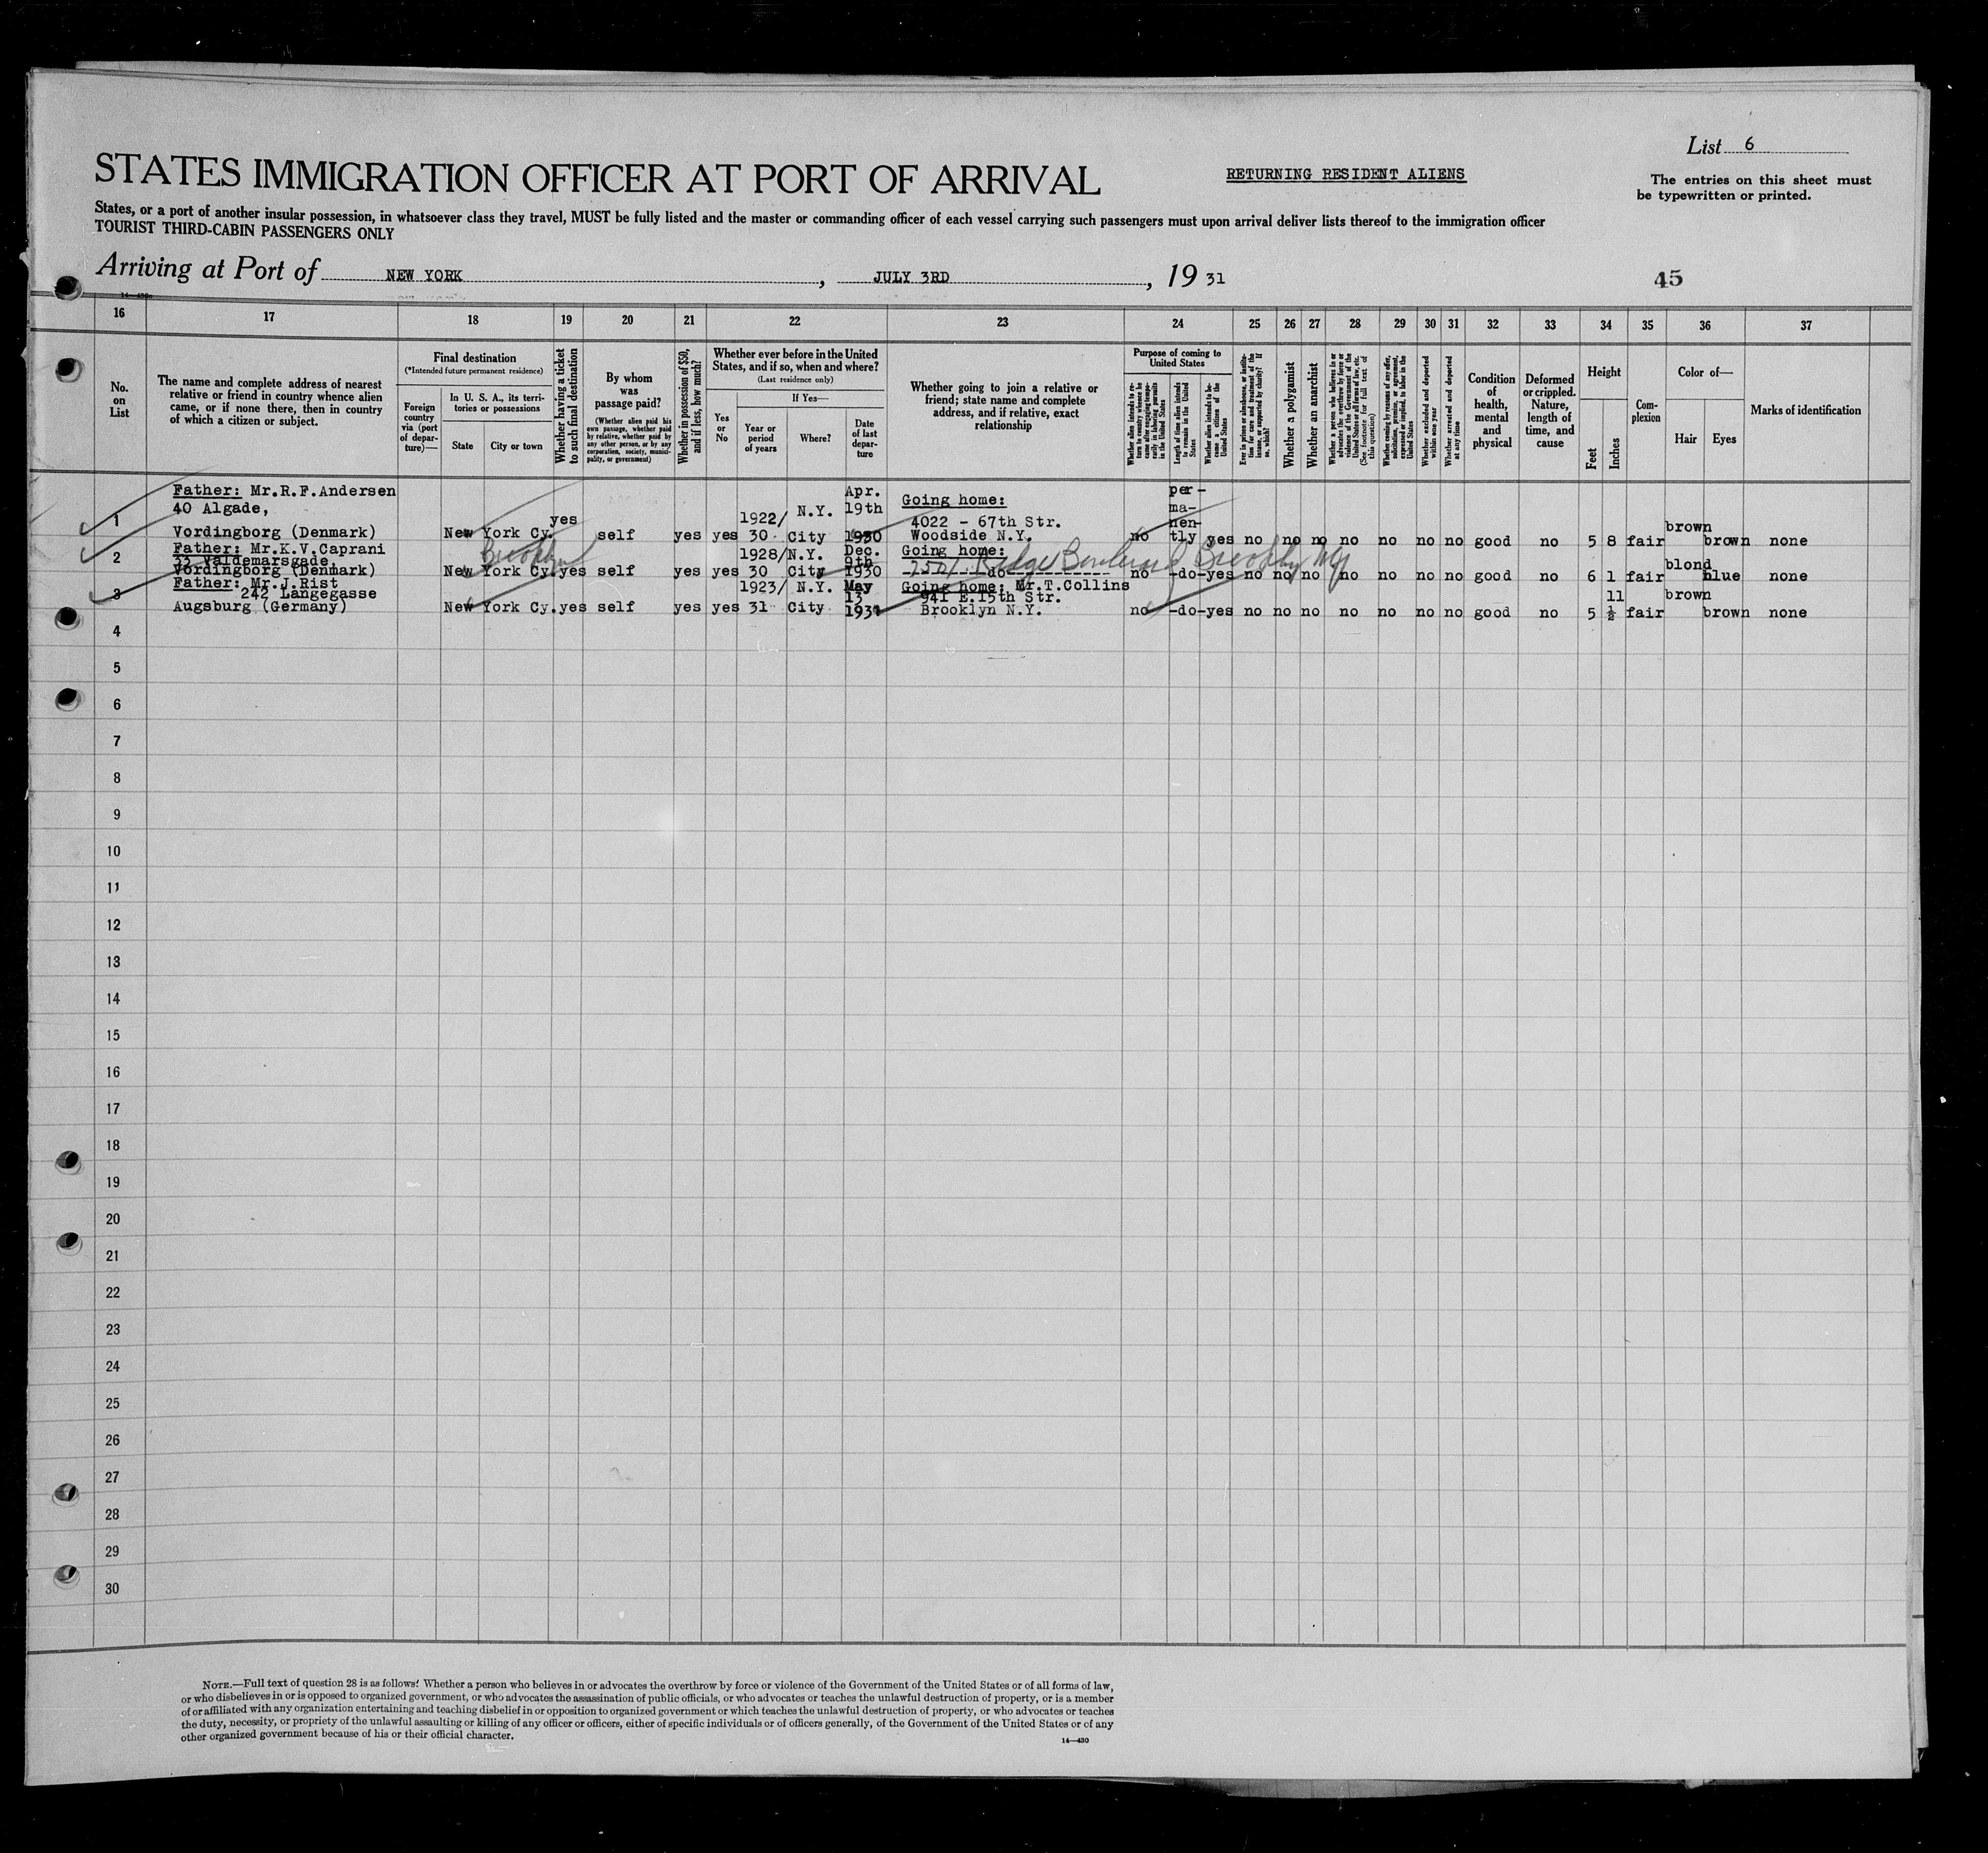 List 6
STATES IMMIGRATION OFFICER AT PORT OF ARRIVAL
RETURNING RESIDENT ALIENS
The entries on this sheet must
be typewritten or printed.
States, or a port of another insular possession, in whatsoever class they travel, MUST be fully listed and the master or commanding officer of each vessel carrying such passengers must upon arrival deliver lists thereof to the immigration officer
TOURIST THIRD-CABIN PASSENGERS ONLY
Arriving at Port of NEW YORK, JULY 3RD, 1931
45
16 17 18 19 20 21 22 23 24 25 26 27 28 29 30 31 32 33 34 35 36 37
No.
on
List
The name and complete address of nearest
relative or friend in country whence alien
came, or if none there, then in country
of which a citizen or subject.
Final destination
(*Intended future permanent residence)
Foreign
country
via (port
of depar-
ture)—
In U. S. A., its terri-
tories or possessions
State
City or town
Whether having a ticket
to such final destination
By whom
was
passage paid?
(Whether alien paid his
own passage, whether paid
by relative, whether paid by
any other person, or by any
corporation, society, munici-
pality, or government)
Whether in possession of $50,
and if less, how much?
Whether ever before in the United
States, and if so, when and where?
(Last residence only)
Yes
or
No
If Yes—
Year or
period
of years
Where?
Date
of last
depar-
ture
Whether going to join a relative or
friend; state name and complete
address, and if relative, exact
relationship
Purpose of coming to
United States
Whether alien intends to re-
turn to country whence he
came after engaging tempo-
rarily in laboring pursuits
in the United States
Length of time alien intends
to remain in the United
States
Whether alien intends to be-
come a citizen of the
United States
Ever in prison or almshouse, or institu-
tion for care and treatment of the
insane, or supported by charity? If
so, which?
Whether a polygamist
Whether an anarchist
Whether a person who believes in or
advocates the overthrow by force or
violence of the Government of the
United States or all forms of law, etc.
(See footnote for full text of
this question)
Whether coming by reasons of any offer,
solicitation, promise, or agreement,
expressed or implied, to labor in the
United States
Whether excluded and deported
within one year
Whether arrested and deported
at any time
Condition
of
health,
mental
and
physical
Deformed
or crippled.
Nature,
length of
time, and
cause
Height
Feet
Inches
Com-
plexion
Color of—
Hair
Eyes
Marks of identification
1
Father: Mr.R.F.Andersen
40 Algade,
Vordingborg (Denmark)
New York Cy.
yes
self
yes
yes
1922/
30
N.Y.
City
Apr.
19th
1930
Going home:
4022 - 67th Str.
Woodside N.Y.
no
per-
ma-
nen-
tly
yes no no no no no no no good no 5 8 fair brown brown none
2
Father: Mr.K.V.Caprani
33 Valdemarsgade,
Vordingborg (Denmark)
New York Cy.
Brooklyn
yes self yes yes
1928/
30
N.Y.
City
Dec.
9th
1930
Going home:
-do-
Ridge Boulevard Brooklyn NY
no -do- yes no no no no no no no good no 6 1 fair blond blue none
3
Father: Mr.J.Rist
242 Langegasse
Augsburg (Germany)
New York Cy. yes self yes yes
1923/
31
N.Y.
City
May
13
1931
Going home: Mr.T.Collins
941 E.15th Str.
Brooklyn N.Y.
no -do- yes no no no no no no no good no 5 11 ½ fair brown brown none
4
5
6
7
8
9
10
11
12
13
14
15
16
17
18
19
20
21
22
23
24
25
26
27
28
29
30
NOTE.—Full text of question 28 is as follows: Whether a person who believes in or advocates the overthrow by force or violence of the Government of the United States or of all forms of law,
or who disbelieves in or is opposed to organized government, or who advocates the assassination of public officials, or who advocates or teaches the unlawful destruction of property, or is a member
of or affiliated with any organization entertaining and teaching disbelief in or opposition to organized government or which teaches the unlawful destruction of property, or who advocates or teaches
the duty, necessity, or propriety of the unlawful assaulting or killing of any officer or officers, either of specific individuals or of officers generally, of the Government of the United States or of any
other organized government because of his or their official character.
14—430